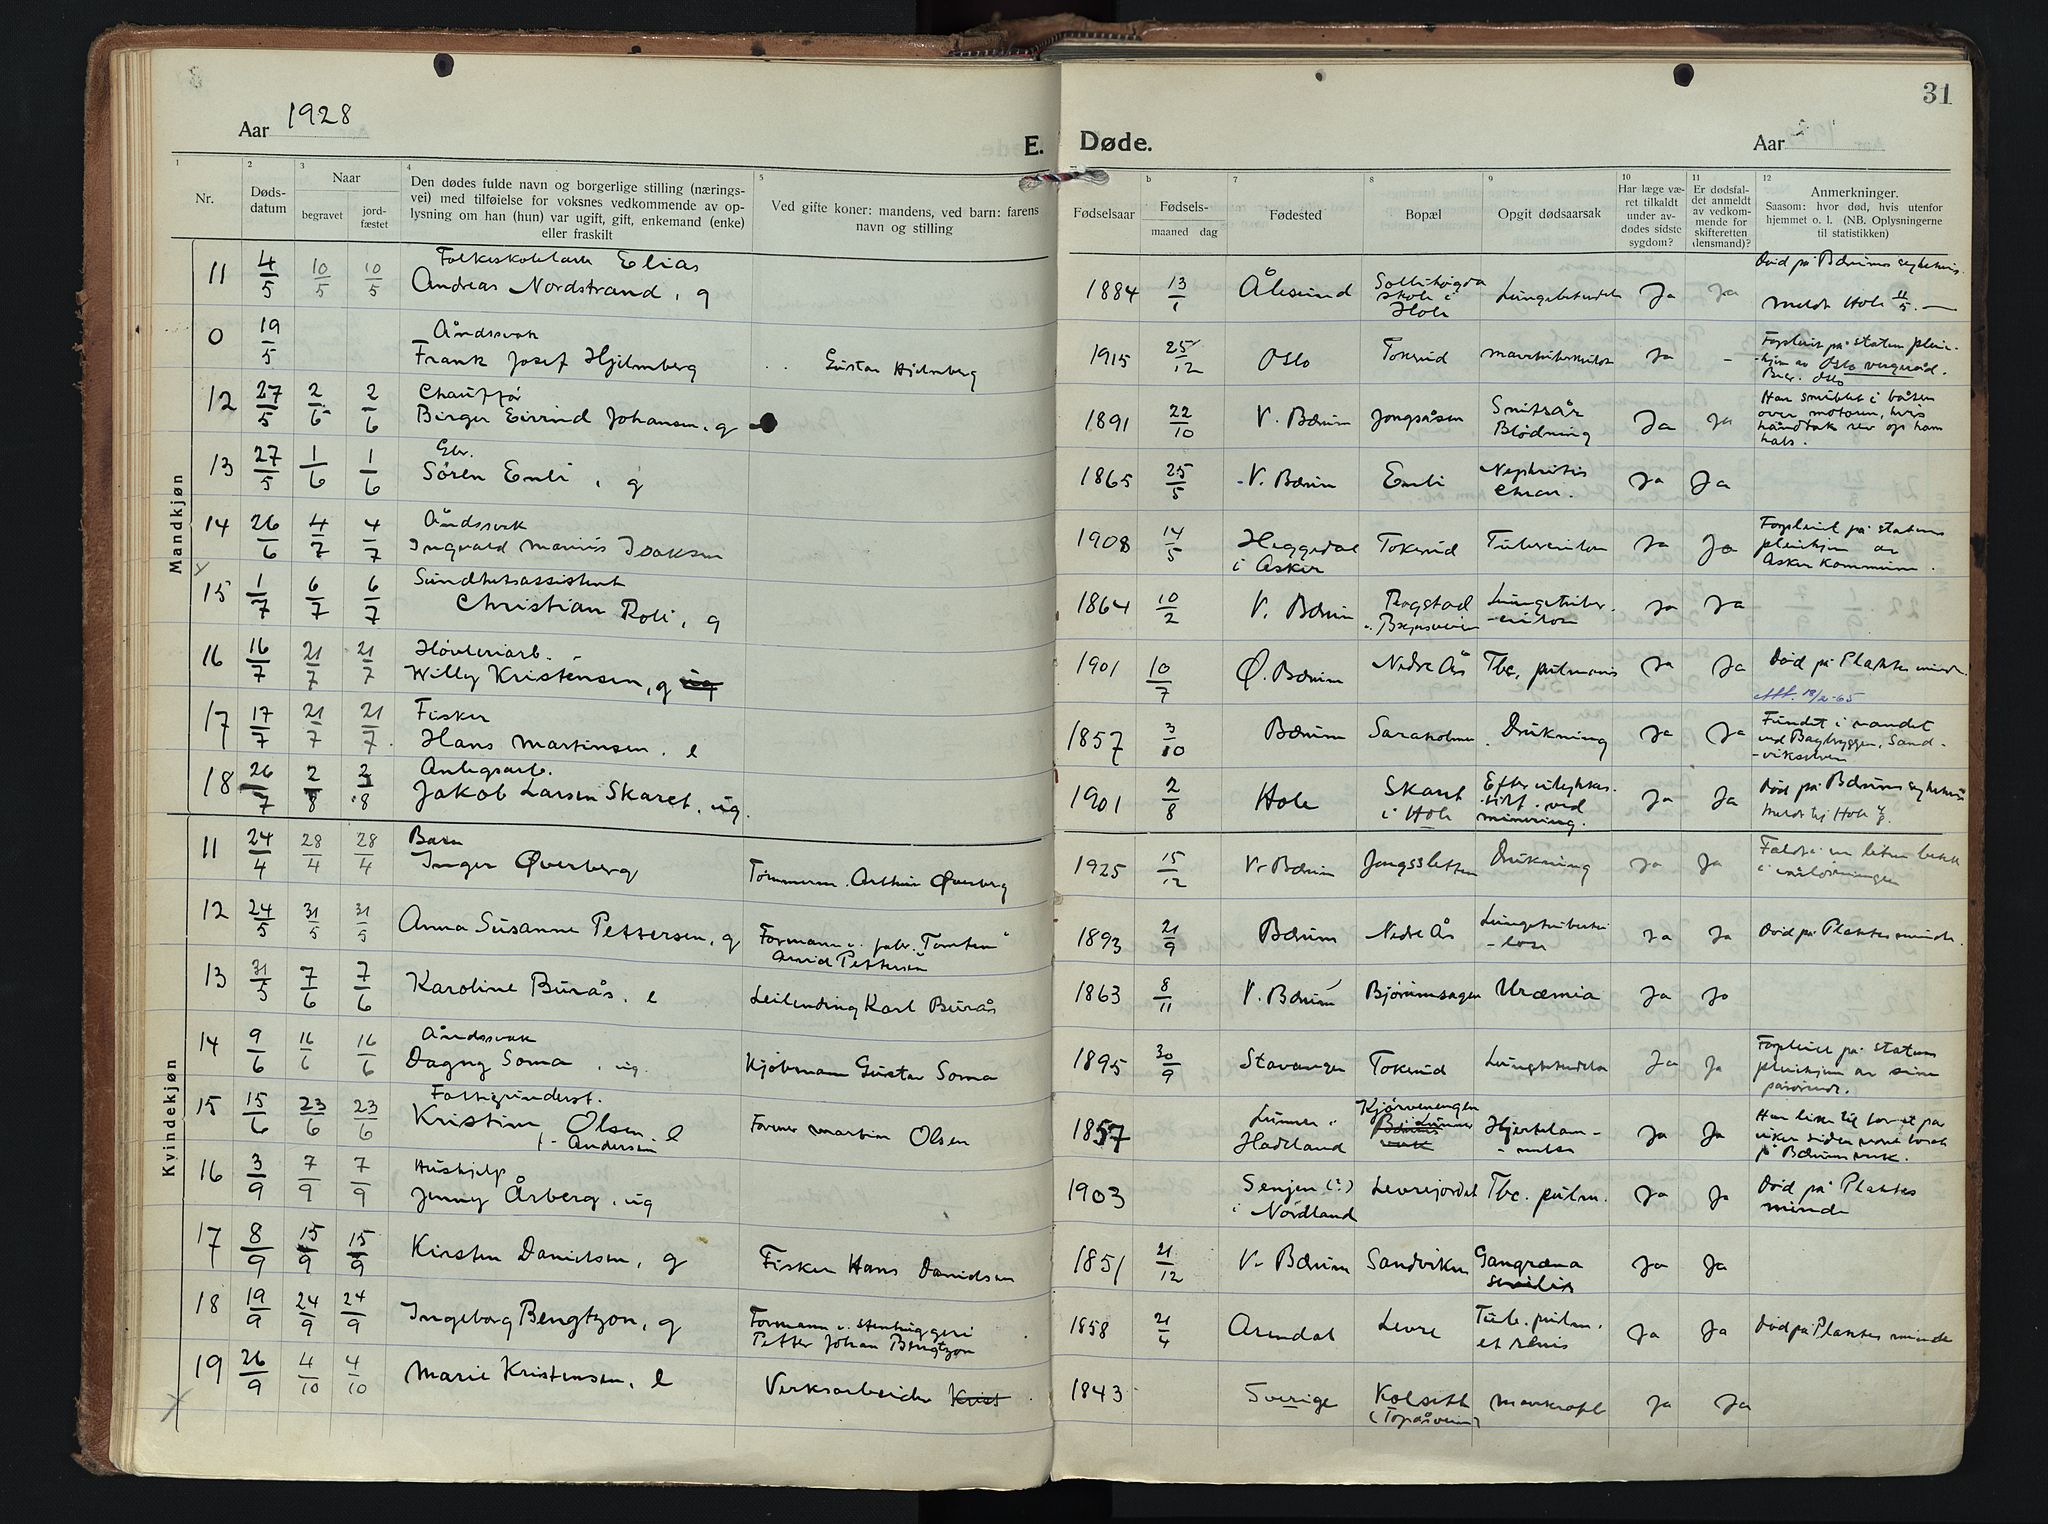 31
Aar 1928
E. Døde.
Aar
1 2 3 4 5 6 7 8 9 10 11 12
Nr.
Døds-
datum
Naar
begravet
jord-
fæstet
Den dødes fulde navn og borgerlige stilling (nærings-
vei) med tilføielse for voksnes vedkommende av op-
lysning om han (hun) var ugift, gift, enkemand (enke)
eller fraskilt
Ved gifte koner: mandens, ved barn: farens
navn og stilling
Fødselsaar
Fødsels-
maaned dag
Fødested
Bopæl
Opgit dødsaarsak
Har læge væ-
ret tilkaldt
under av-
dødes sidste
sygdom?
Er dødsfal-
det anmeldt
av vedkom-
mende for
skifteretten
(lensmand)?
Anmerkninger.
Saasom: hvor død, hvis utenfor
hjemmet o. l. (NB. Oplysningerne
til statistikken)
Mandkjøn
11 4/5 10/5 10/5 Elias
Andreas Nordstrand, g
1884 13/1 Ålesund Sollihøgda
skole i
Hole Ja Ja Død på Bærums
meldt Hole 11/5.
0 19/5 Åndssvak
Frank Josef Hjelmberg Gustav Hjelmberg
1915 25/12 Oslo Tokerud Ja - Forpleiet på statens pleie-
hjem av Oslo vergeråd.
Oslo
12 27/5 2/6 2/6 Chauffør
Birger Eivind Johansen, g
1891 22/10 V. Bærum Jongsåsen Snitsår
Blødning Ja Ja Har snublet i båten
over motoren, hvis
håndtak rev op ham
hals.
13 27/5 1/6 1/6 Gbr.
Sören Emli, g
1865 25/5 V. Bærum Emli Nephritis
chron. Ja Ja
14 26/6 4/7 4/7 Åndssvak
Ingvald Marius Isaksen
1908 14/5 Heggedal
i Asker Tokerud Tuberculose Ja Ja Forpleiet på statens
pleiehjem av
Asker Kommune.
15 1/7 6/7 6/7 Sundhetsassistent
Christian Roli, g
1864 10/2 V. Bærum Ringstad Lungetuber-
culose Ja Ja
16 16/7 21/7 21/7 Høvleriarb.
Willy Kristensen, g ug
1901 10/7 Ø. Bærum Nedre Ås Tbc. pulmonis Ja Ja Død på Plahtes minde.
Att. 18/2-65
17 17/7 21/7 21/7 Fisker
Hans Martinsen. e
1857 3/10 Bærum Saraholmen Drukning Ja Ja Fundet i vandet
ved Sand-
vikselven
18 26/7 2/8 2/8 Anlegsarb.
Jakob Larsen Skaret, ug.
1901 2/8 Hole Skaret
i Hole Efter ulykkes-
tilf. ved
minering. Ja Ja Død på Bærums sykehus
Meldt til Hole
Kvindekjøn
11 24/4 28/4 28/4 Barn
Inger Øverberg Tömmerm. Arthur Øverberg
1925 15/12 V. Bærum Jongssletten Drukning Ja Ja Faldt i en liten bekk
i vårløsningen
12 24/5 31/5 31/5 Anna Susanne Pettersen, g Formann v. fabr. "Tomten"
Arvid Pettersen
1893 21/9 Bærum Nedre Ås Lungetuberku-
lose Ja Ja Død på Plahtes minde.
13 31/5 7/6 7/6 Karoline Burås. e Leilending Karl Burås
1863 8/11 V. Bærum Bjørumsagen Uræmia Ja Ja
14 9/6 16/6 16/6 Åndssvak
Dagny Soma, ug. Kjøbmann Gustav Soma
1895 30/9 Stavanger Tokerud Lungebetendelse Ja Ja Forpleiet på statens
pleiehjem av sine
pårørende.
15 15/6 23/6 23/6 Fattigunderst.
Kristine Olsen e
f. Andersen Forener Martin Olsen
1857 Lunner i
Hadeland Kjørvenengen
Lunner
Bærums
verk Hjertelam-
melse Ja Ja
på Bærums verk.
16 3/9 7/9 7/9 Hushjelp
Jenny Årberg, ug
1903 Senjen (?)
i Nordland Levrejordet Tbc. pulm. Ja Ja Død på Plahtes
minde
17 8/9 15/9 15/9 Kirsten Danielsen, g Fisker Hans Danielsen
1851 21/12 V. Bærum Sandviken Gangræna
senilis Ja Ja
18 19/9 24/9 24/9 Ingeborg Bengtzon, g Formann v. stenhuggeri
Petter Johan Bengtzon
1858 21/4 Arendal Levre Tub. pulm.
et renis Ja Ja Død på Plahtes minde
19 26/9 4/10 4/10 Marie Kristensen, e Verksarbeider Krist
1843 Sverige Kolsett
(Topåsveien) Ja Ja